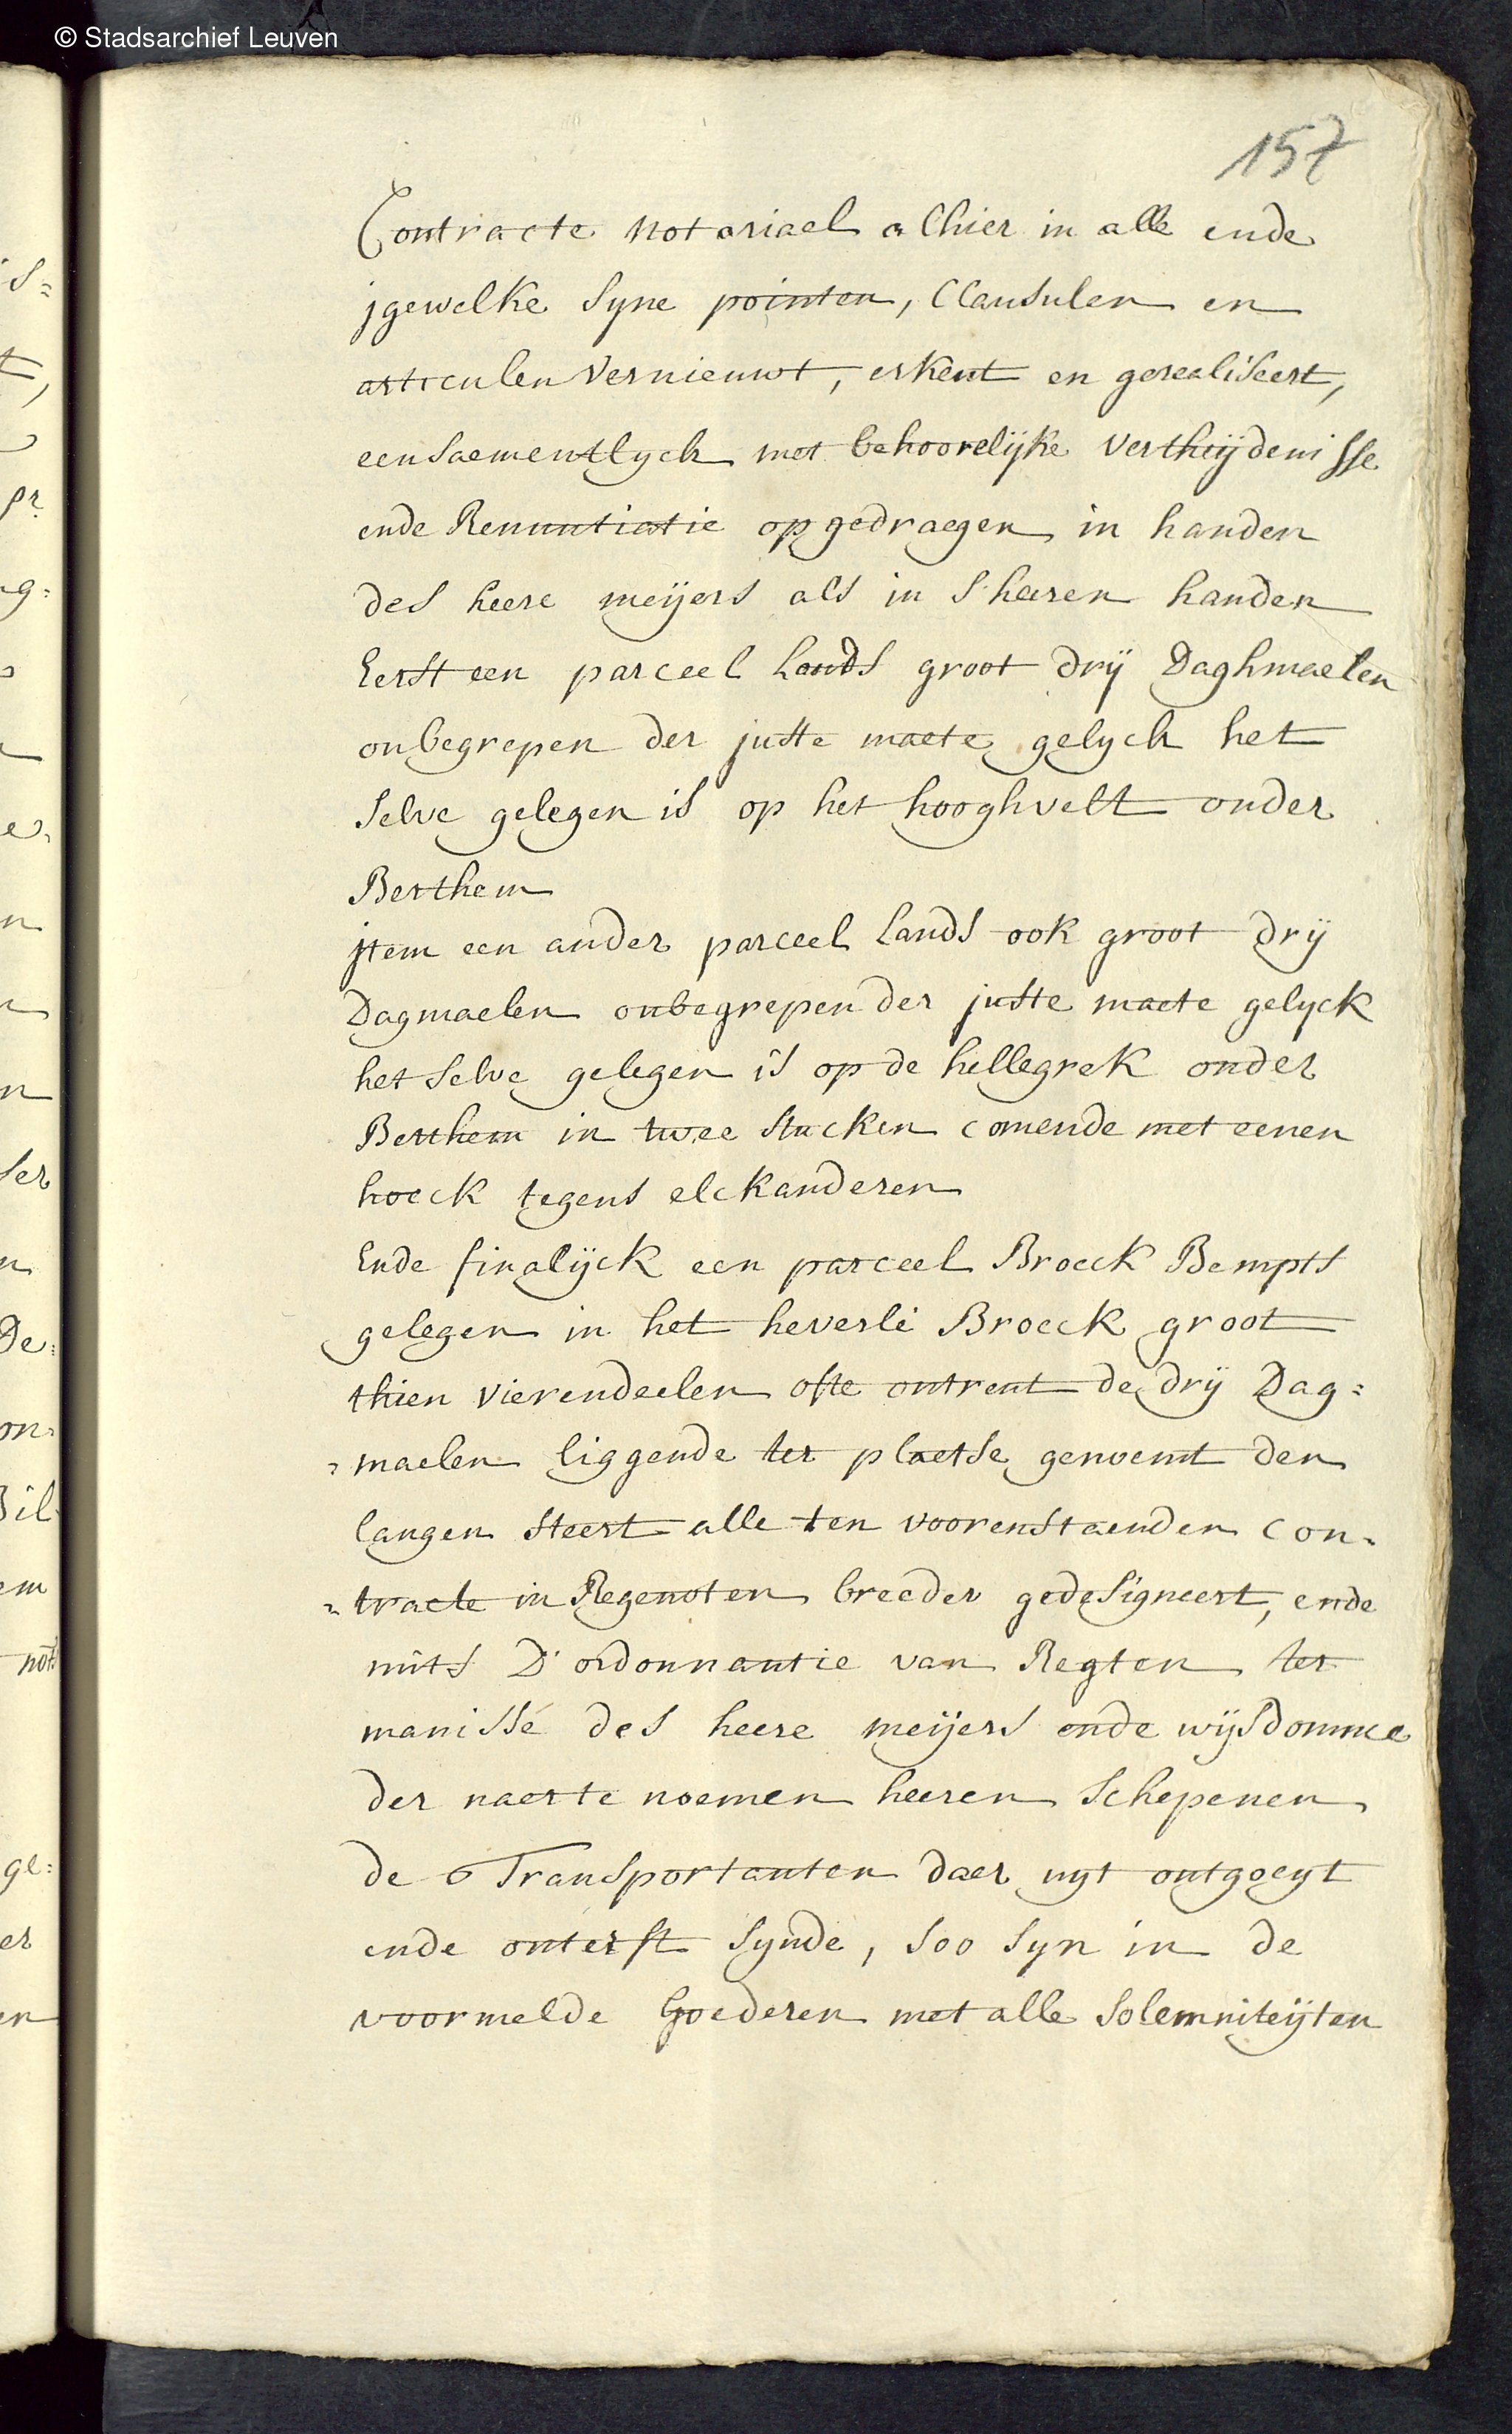 © Stadsarchief Leuven
157
Contracte notariael alhier in alle ende
jgewelke syne pointen, Clausulen en
articulen vernieuwt, erkent en gerealiseert,
eensaementlyck met behoorelijke verthijdenisse
ende Renuntiatie opgedraegen in handen
des heere meijers als in s'heeren handen
Eerst een parceel Lands groot drij Daghmaelen
onbegrepen der juste maete gelyck het
selve gelegen is op het hooghvelt onder
Berthem
jtem een ander parceel Lands ook groot drij
Dagmaelen onbegrepen der juste maete gelyck
het selve gelegen is op de hellegrek onder
Berthem in twee stucken comende met eenen
hoeck tegens elckanderen
Ende finalijck een parceel Broeck Bempts
gelegen in het heverle Broeck groot
thien vierendeelen ofte ontrent de drij Dag=
=maelen liggende ter plaetse genoemt den
langen steert alle ten voorenstaenden con=
=tracte in Regenoten breeder gedesigneert, ende
mits D'ordonnantie van Regten ter
manisse des heere meijers ende wijsdomme
der naerte noemen heeren schepenen
de Transportanten daer uyt ontgoeyt
ende onterft synde, soo syn in de
voormelde Goederen met alle solemniteijten